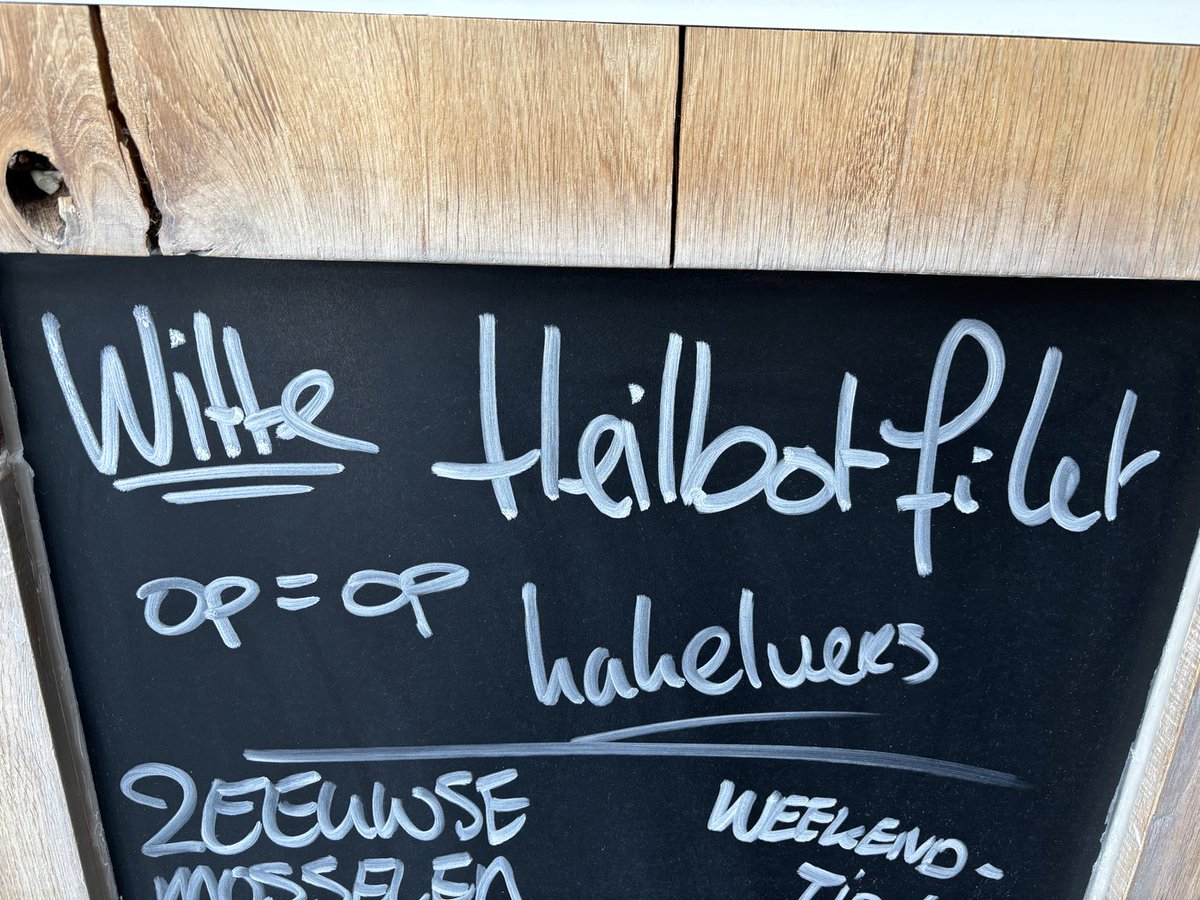 Witte Heilbotfilet
op = op
kakelvers
ZEEUWSE
MOSSELEN
WEEKEND-